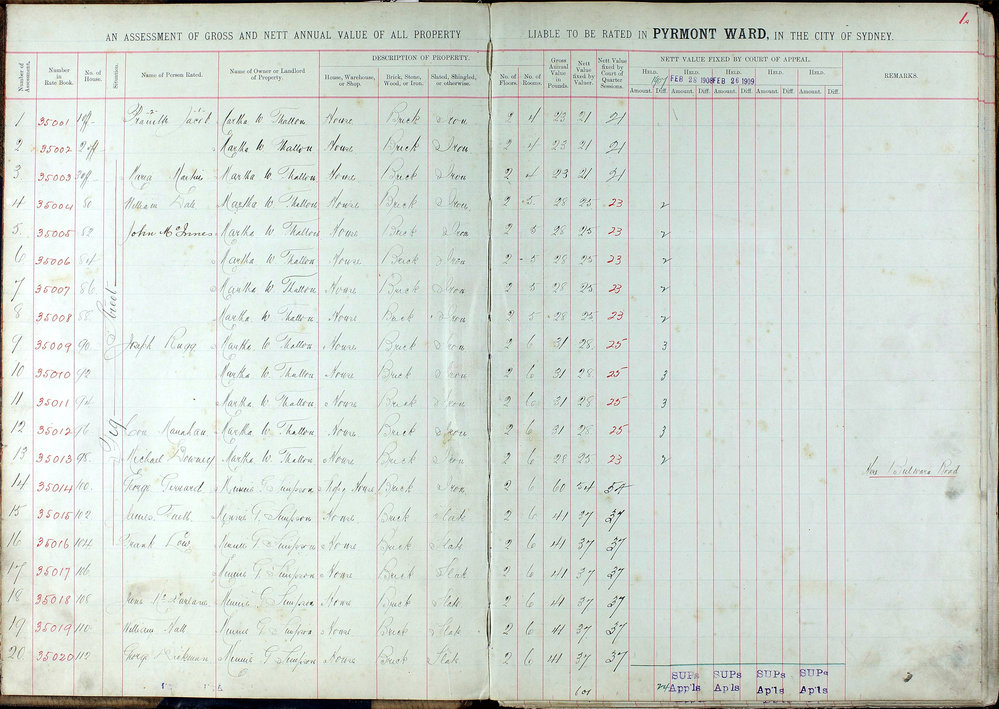 1
AN ASSESSMENT OF GROSS AND NETT ANNUAL VALUE OF ALL PROPERTY LIABLE TO BE RATED IN PYRMONT WARD, IN THE CITY OF SYDNEY.
DESCRIPTION OF PROPERTY. NETT VALUE FIXED BY COURT OF APPEAL
Number of Assessment. Number in Rate Book. No. of House. Situation. Name of Person Rated. Name of Owner or Landlord of Property. House, Warehouse, or Shop. Brick, Stone, Wood, or Iron. Slated, Shingled, or otherwise. No. of Floors. No. of Rooms. Gross Annual Value in Pounds. Nett Value fixed by Valuer. Nett Value fixed by Court of Quarter Sessions. HELD. HELD. HELD. HELD. HELD. REMARKS.
1907 FEB 28 1908 FEB 26 1909
Amount. Diff. Amount. Diff. Amount. Diff. Amount. Diff. Amount. Diff.
1 35001 1 off Martha W. Thallon House Brick Iron 2 4 23 21 21
2 35002 2 off Martha W. Thallon House Brick Iron 2 4 23 21 21
3 35003 3 off Martha W. Thallon House Brick Iron 2 4 23 21 21
4 35004 80 William Martha W. Thallon House Brick Iron 2 5 28 25 23 2
5 35005 82 John McInnes Martha W. Thallon House Brick Iron 2 5 28 25 23 2
6 35006 84 Martha W. Thallon House Brick Iron 2 5 28 25 23 2
7 35007 86 Martha W. Thallon House Brick Iron 2 5 28 25 23 2
8 35008 88 Martha W. Thallon House Brick Iron 2 5 28 25 23 2
9 35009 90 Joseph Rugg Martha W. Thallon House Brick Iron 2 6 31 28 25 3
10 35010 92 Martha W. Thallon House Brick Iron 2 6 31 28 25 3
11 35011 94 Martha W. Thallon House Brick Iron 2 6 31 28 25 3
12 35012 96 Manahan Martha W. Thallon House Brick Iron 2 6 31 28 25 3
13 35013 98 Michael Martha W. Thallon House Brick Iron 2 6 28 25 23 2
Road
14 35014 100 George Minnie G. Simpson House Brick Iron 2 6 60 54 54
15 35015 102 James Minnie G. Simpson House Brick Slate 2 6 41 37 37
16 35016 104 Frank Low Minnie G. Simpson House Brick Slate 2 6 41 37 37
17 35017 106 Minnie G. Simpson House Brick Slate 2 6 41 37 37
18 35018 108 Minnie G. Simpson House Brick Slate 2 6 41 37 37
19 35019 110 William Hall Minnie G. Simpson House Brick Slate 2 6 41 37 37
20 35020 112 George Minnie G. Simpson House Brick Slate 2 6 41 37 37
Street
SUPs SUPs SUPs SUPs
601 24 Appls Apls Apls Apls